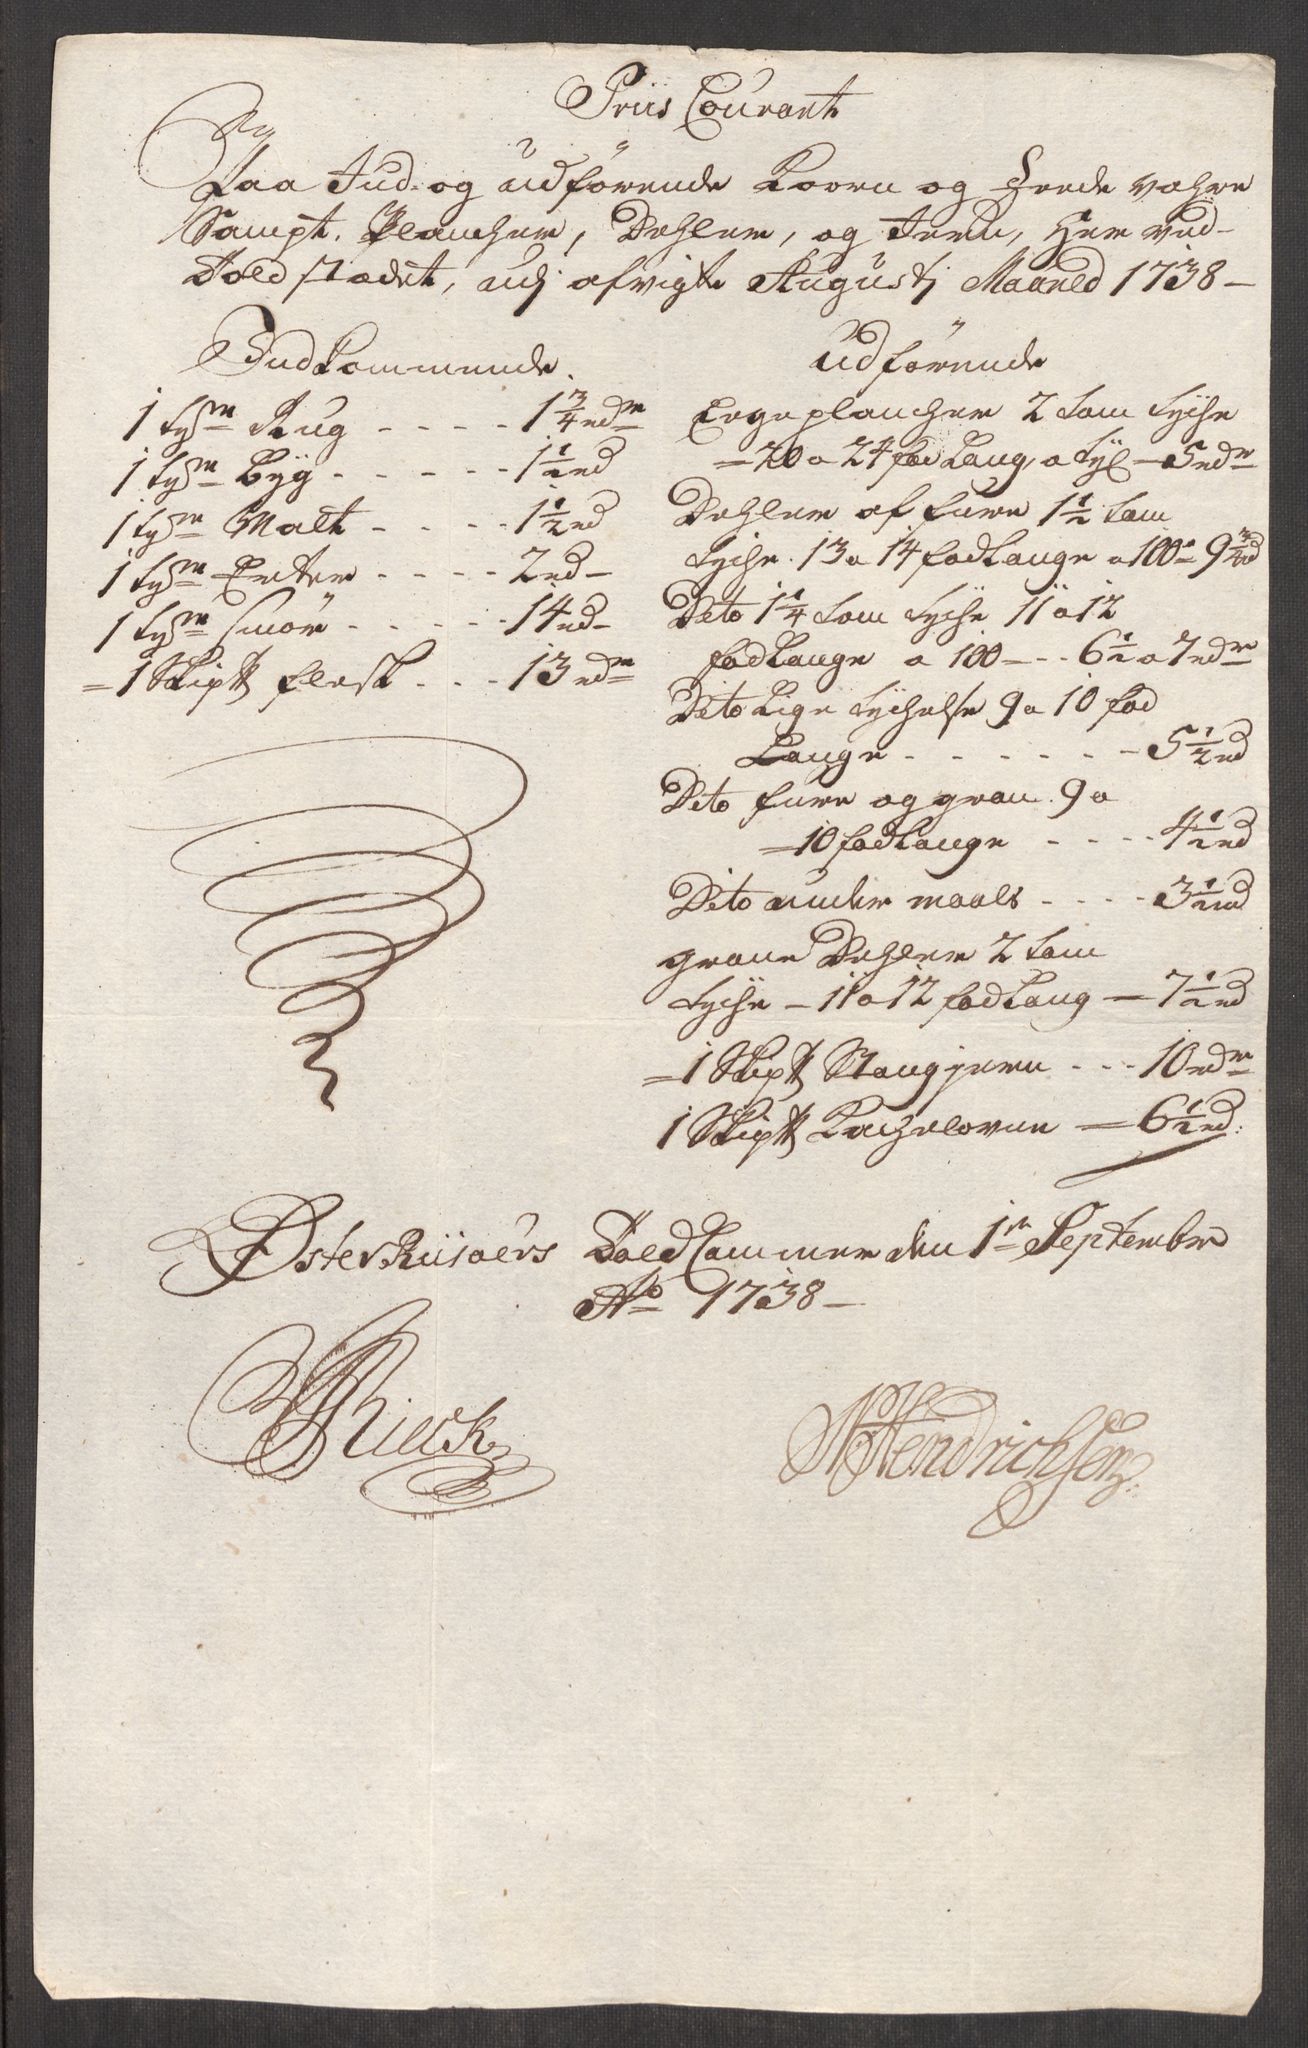 Priis Courant
Paa Ind- og udförende Koorn og Fede vahre
Sampt. Plancher, Dehler, og Jern, Her ved
Toldstædet, udj afvigte Augustj Maaned 1738 –
Indkommende.
1 tøn Rug - - - - 1 3/4 rdr
1 tøn Byg - - - - - 1 1/2 rd
1 tøn Malt - - - - 1 1/2 rd
1 tøn Erter - - - - 2 rd –
1 tøn smör - - - - - 14 rd –
= 1 Skip℔ flesk - - - 13 rdr
udförende
Egeplancher 2 tom tyche
= 20 a 24 fod Lang, a tyl – 5 rdr
Dehler af fure 1 1/2 tom
tyche 13 a 14 fod Lange a 100 – 9 3/4 rd
Dito 1 1/4 tom tyche 11 a 12
fod Lange a 100 – - - 6 1/2 a 7 rdr
Dito Lige tychelse 9 a 10 fod
Lange - - - - - - - 5 1/2 rd
Dito fure og gran 9 a
= 10 fod Lange - - - - 4 1/2 rd
Dito under maals - - - - 3 1/2 rd
grane Dehler 2 tom
tyche – 11 a 12 fod Lang – 7 1/2 rd
= 1 Skip℔ Stangjern - - - 10 rdr
1 Skip℔ Kachelovne = 6 1/2 rd.
Østerriisöers Told Cammer den 1te September
Ao 1738 –
Rieck
NHendrichsen